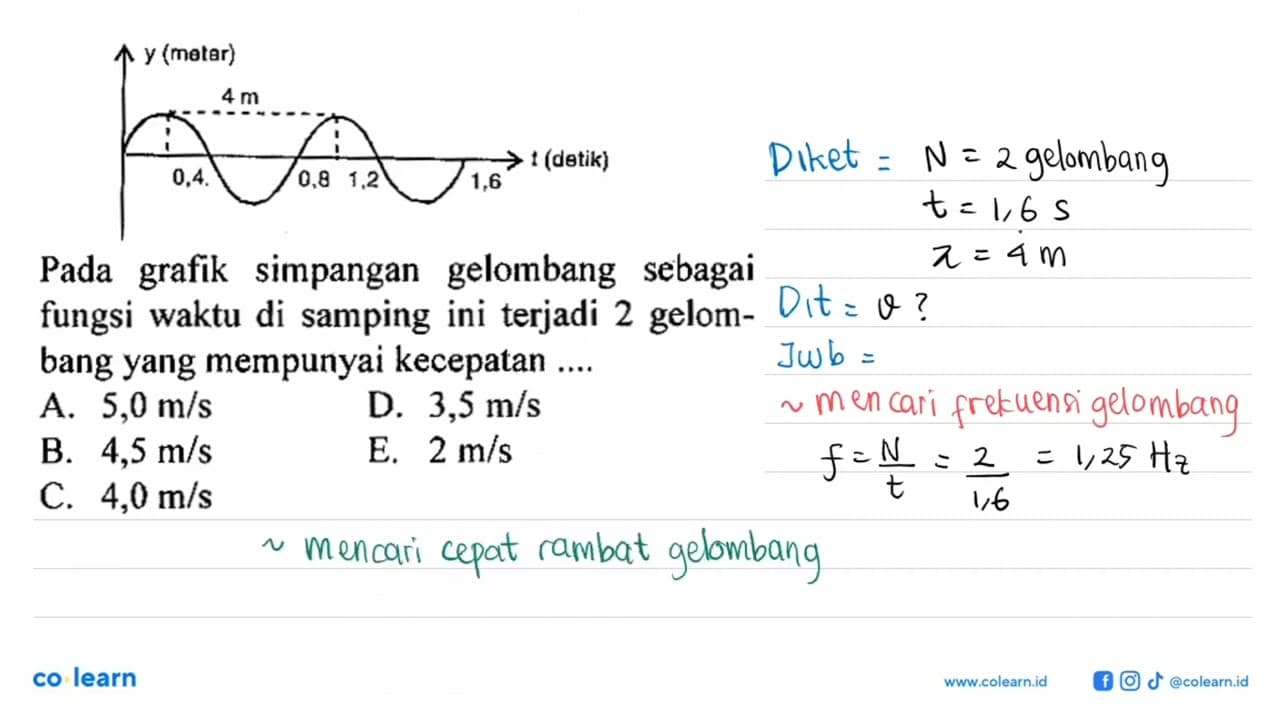 y (meter)
4 m
t (detik)
0,4.
0,8
1,2
1,6
Pada grafik simpangan gelombang sebagai
fungsi waktu di samping ini terjadi 2 gelom-
bang yang mempunyai kecepatan ....
A. 5,0 m/s
D. 3,5 m/s
B. 4,5 m/s
E. 2 m/s
C. 4,0 m/s
Diket = N = 2 gelombang
t = 1,6 s
λ = 4 m
Dit = v ?
Jwb =
~ mencari frekuensi gelombang
f = N/t = 2/1,6 = 1,25 Hz
~ mencari cepat rambat gelombang
co learn
www.colearn.id
@colearn.id